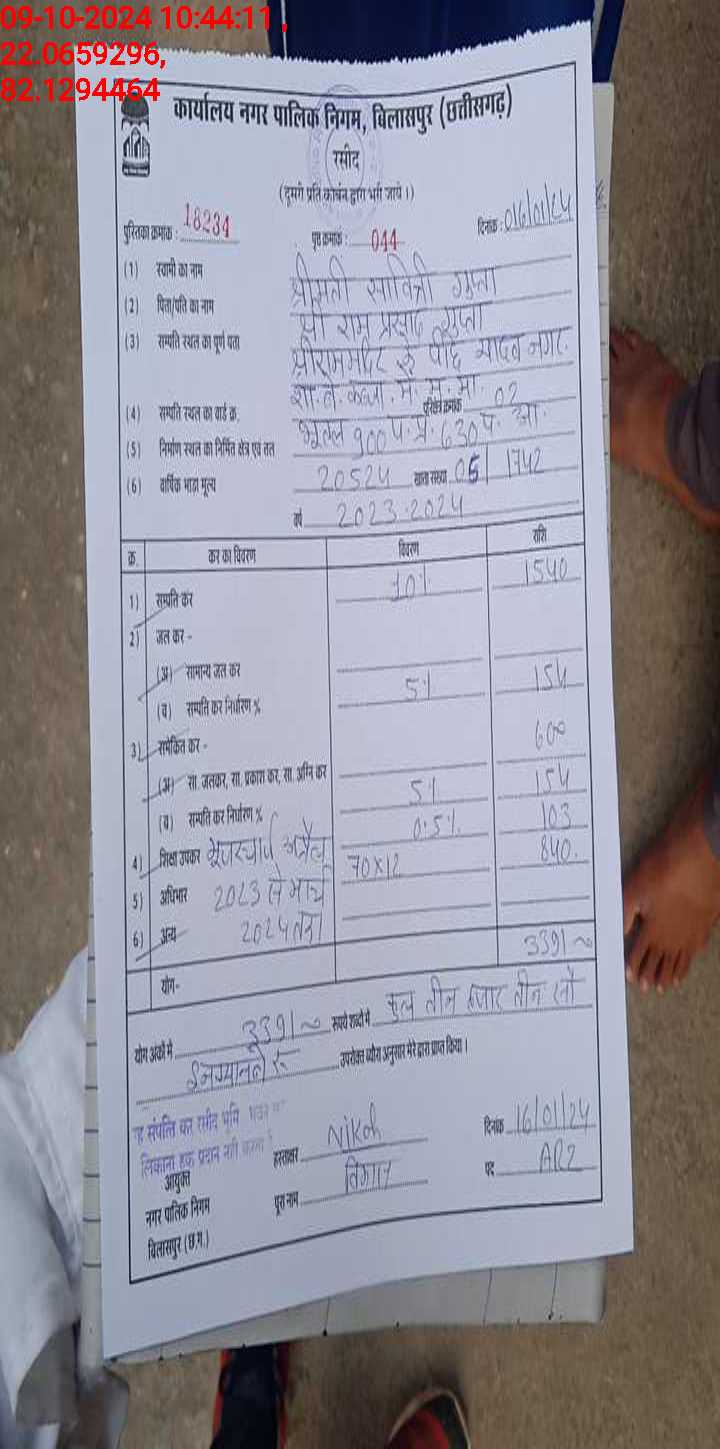 09-10-2024 10:44:11 ,
22.0659296,
82.1294464
कार्यालय नगर पालिक निगम, विलासपुर (छत्तीसगढ़)
रसीद
(दूसरी प्रति कार्बन द्वारा भरी जाये।)
पुस्तिका क्रमांक : 18234 पृष्ठ क्रमांक : 044 दिनांक : 016/01/24
(1) स्वामी का नाम श्रीमती सावित्री गुप्ता
(2) पिता/पति का नाम श्री राम प्रसाद गुप्ता
(3) सम्पति स्थल का पूर्ण पता श्रीराम मंदिर के पीछे यादव नगर
(4) सम्पति स्थल का वार्ड क्र. परिक्षेत्र क्रमांक 02
(5) निर्माण स्थल का निर्मित क्षेत्र एवं तल भूतल 900 प.प्र. 630 प. आ.
(6) वार्षिक भाड़ा मूल्य 20524 खाता संख्या 05/1742
वर्ष 2023-2024
क्र. कर का विवरण विवरण राशि
1) सम्पति कर 10% 1540
2) जल कर -
(अ) सामान्य जल कर
(ब) सम्पति कर निर्धारण % 5% 154
3) समेकित कर - 600
(अ) सा. जलकर, सा. प्रकाश कर, सा. अग्नि कर
(ब) सम्पति कर निर्धारण % 5% 154
4) शिक्षा उपकर यूजरचार्ज अप्रैल 0.5% 103
5) अधिभार 2023 से मार्च 70x12 840.
6) अन्य 2024 तक
योग- 3391~
योग अंकों में 3391~ रूपये शब्दों में कुल तीन हजार तीन सौ
इनक्यानबे रु उपरोक्त ब्यौरा अनुसार मेरे द्वारा प्राप्त किया।
संपत्ति कर रसीद भूमि
हक प्रदान नहीं करता
आयुक्त
नगर पालिक निगम
विलासपुर (छ.ग.)
हस्ताक्षर दिनांक 16/01/24
पूरा नाम पद ARI